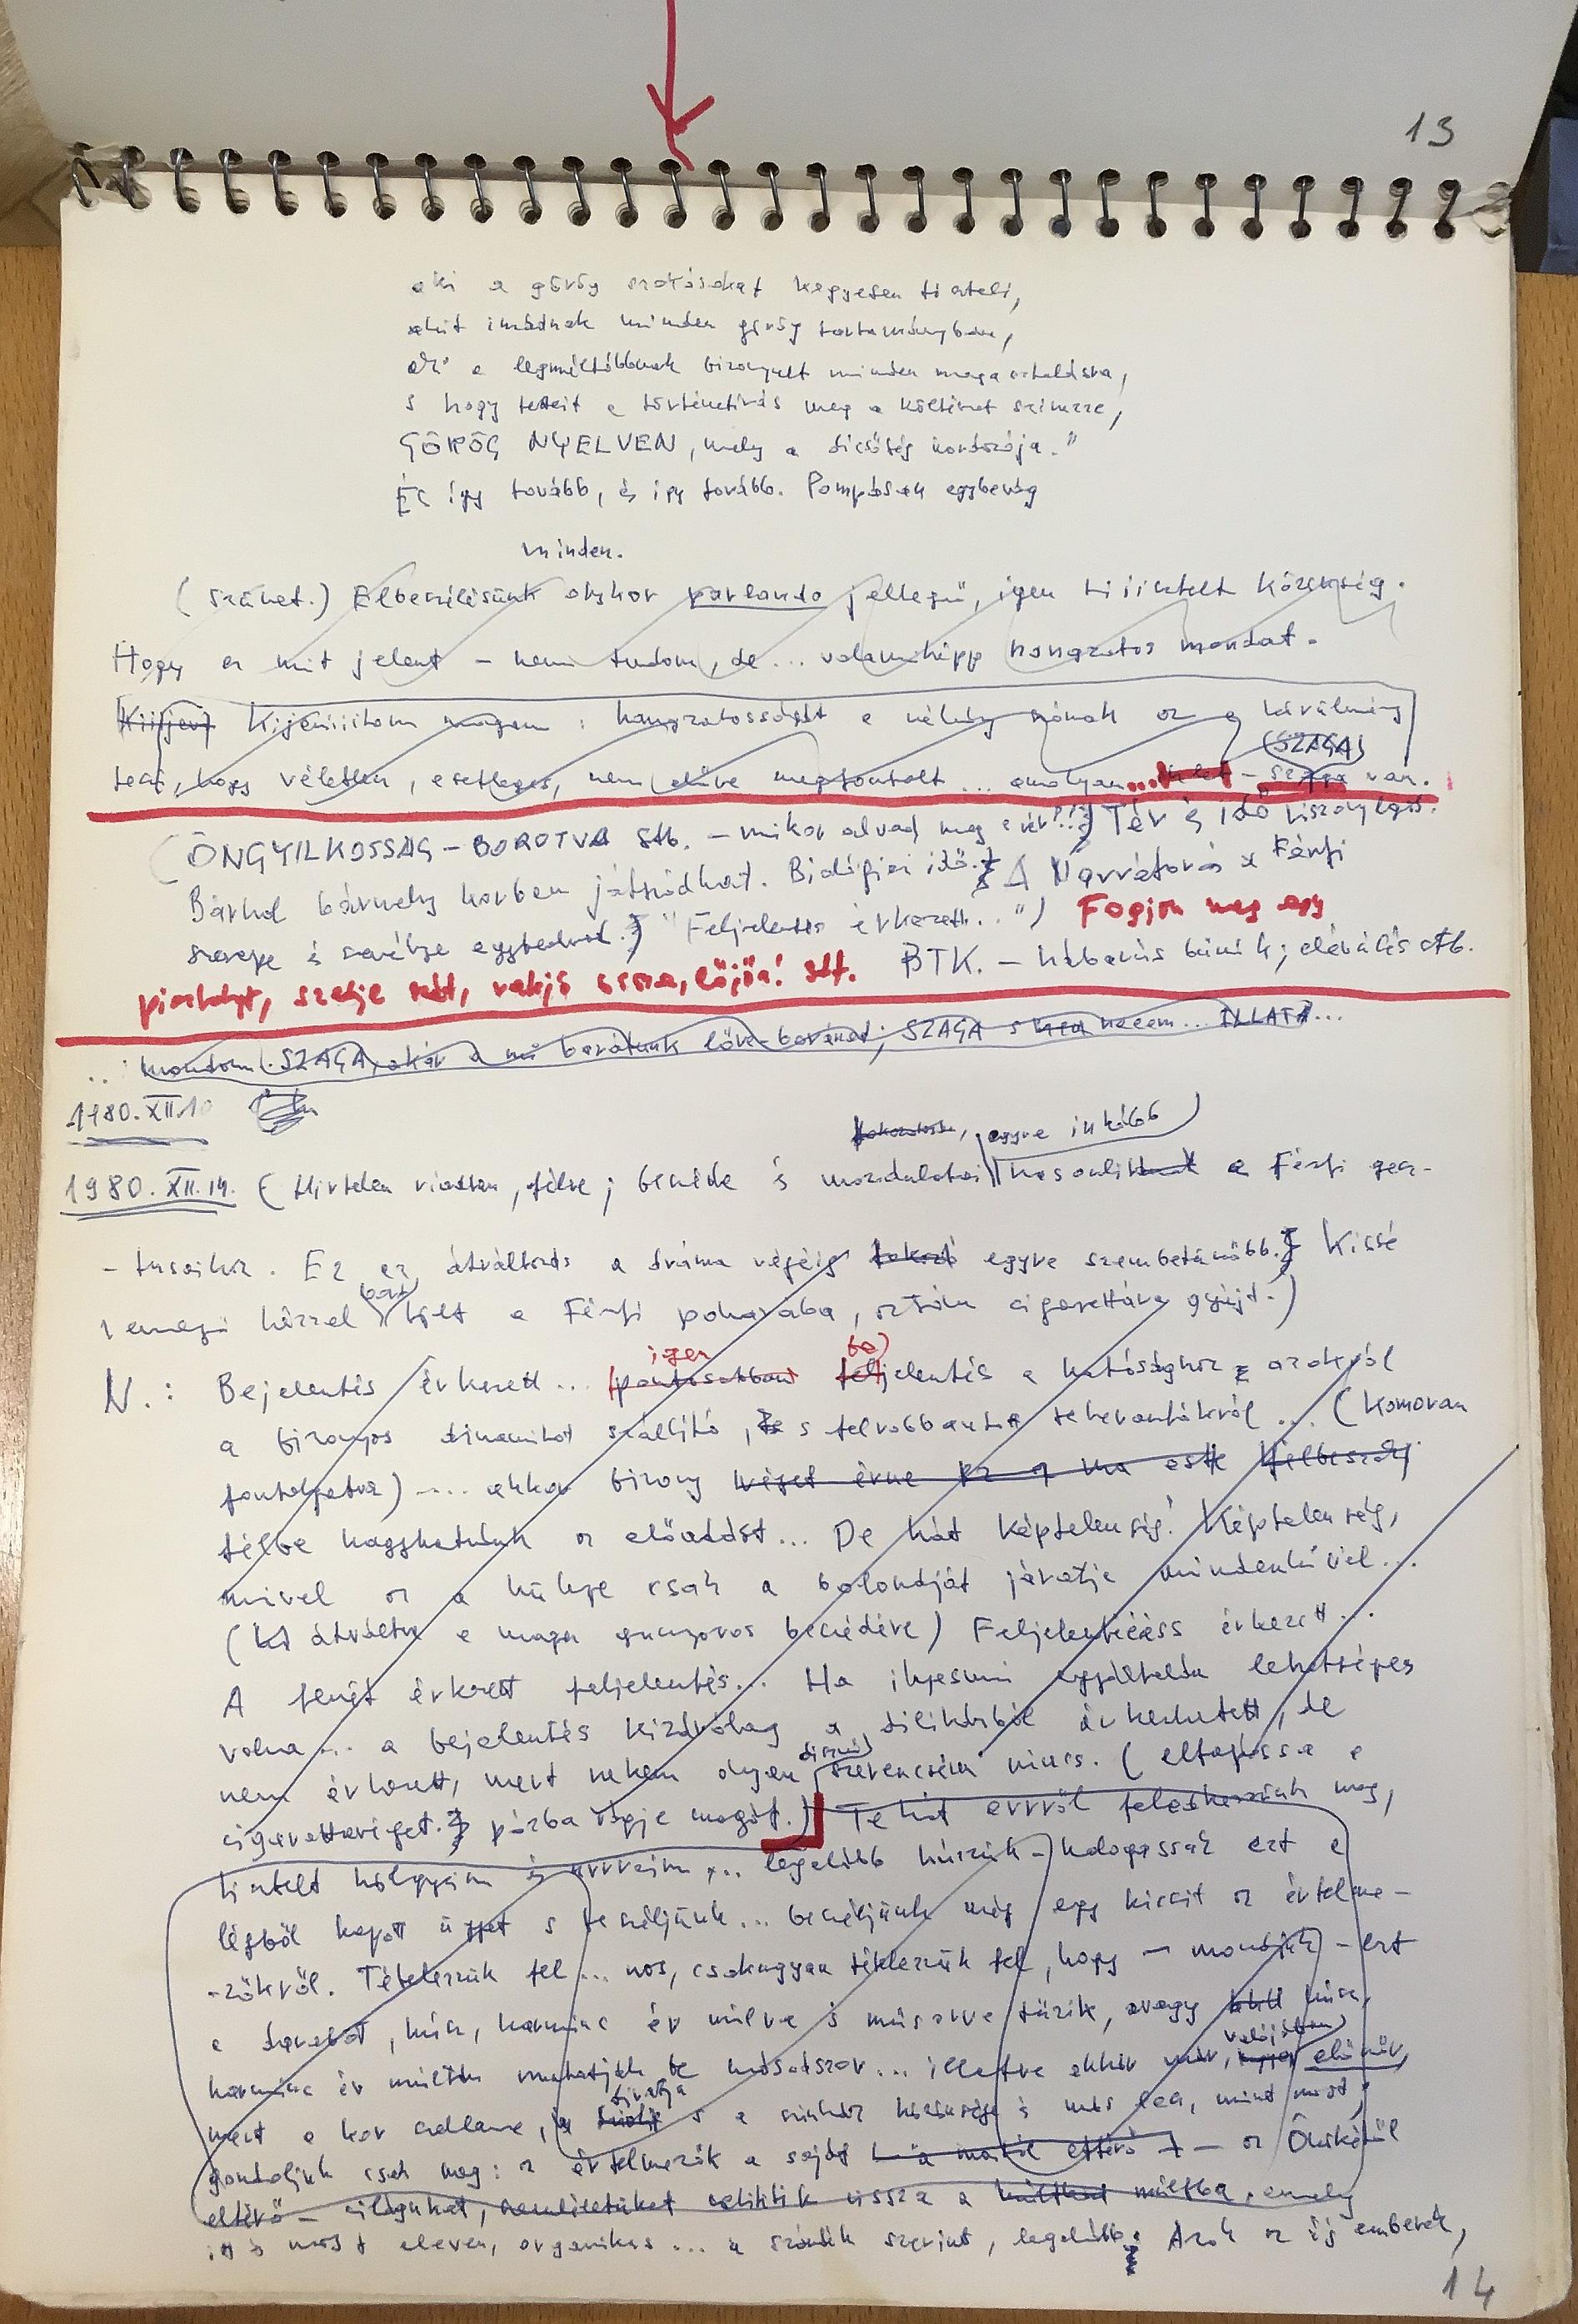 13
aki a görög szokásokat kegyesen tiszteli,
akit imádnak minden görög tartományban,
aki a legméltóbbnak bizonyult minden magasztalásra,
s hogy tetteit a történetírás meg a költészet
GÖRÖG NYELVEN, mely a dicsőség hordozója."
És így tovább, és így tovább. Pompásan egybevág
minden.
(szünet.) Elbeszélésünk olykor parlando jellegű, igen tisztelt közönség.
Hogy ez mit jelent – nem tudom, de... valamiképp hangzatos mondat.
Kijavítom magam: hangzatosságát e néhány szónak az a körülmény
(SZAGA)
teszi, hogy véletlen, esetleges, nem előre megfontolt ... amolyan ... van.
(ÖNGYILKOSSÁG – BOROTVA stb. – mikor alvad meg a vér?!?) Tér és IDŐ viszonylagos.
Bárhol bármely korban játszódhat. Biológiai idő. A Narrátorás x Férfi
szerepe és személye egybeolvad. "Feljelentés érkezett...") Fogjon meg egy
pisztolyt, szedje szét, rakja össze, lőjön! stb. BTK. – háborús bűnök; elévülés stb.
... mondom SZAGA, akár a mi barátunk SZAGA s nem hanem... ILLATA...
1980. XII. 10
egyre inkább
1980. XII. 14. (Hirtelen riadtan, félve; beszéde és mozdulatai hasonlit a Férfi gesz-
-tusaihoz. Ez az átváltozás a dráma végéig egyre szembetűnőbb. Kissé
remegő kézzel bort tölt a Férfi poharába, aztán cigarettára gyújt.)
igen be
N.: Bejelentés érkezett... (pontosabban feljelentés a hatósághoz azokról
a bizonyos dinamitot szállító, s felrobbantott teherautókról ... (komoran
fontolgatva) .... akkor bizony véget érne ez a ma esti
félbe hagyhatnánk az előadást... De hát képtelenség! Képtelenség,
mivel ez a hülye csak a bolondját járatja mindenkivel...
(átváltva a maga gunyoros beszédére) Feljelentééss érkezett...
A fenét érkezett feljelentés... Ha ilyesmi egyáltalán lehetséges
volna... a bejelentés kizárólag a dilikórból érkezhetett, de
disznó
nem érkezett, mert nekem olyan szerencsém nincs. (eltapossa a
cigarettavéget. pózba vágja magát.) Tehát erről feledkezzünk meg,
tisztelt hölgyeim és uraim ... legelább húzzuk-halogassuk ezt a
légből kapott ügyet s beszéljünk... beszéljünk még egy kicsit az értelme-
-zőkről. Tételezzük fel... nos, csakugyan tételezzük fel, hogy – mondjuk – ezt
a darabot, húsz, harminc év múlva is műsorra tűzik, avagy húsz,
valójában
harminc év múltán mutatják be másodszor... illetve akkor már, előszőr,
divatja
mert a kor szelleme, s a színház közönsége is más lesz, mint most;
gondoljuk csak meg: az értelmezők a saját – a maitól eltérő – az Önökétől
eltérő – világukat, szemléletüket vetítik vissza a múltba, amely
itt s most eleven, organikus ... a szándék szerint, legalább. Azok az új emberek,
14